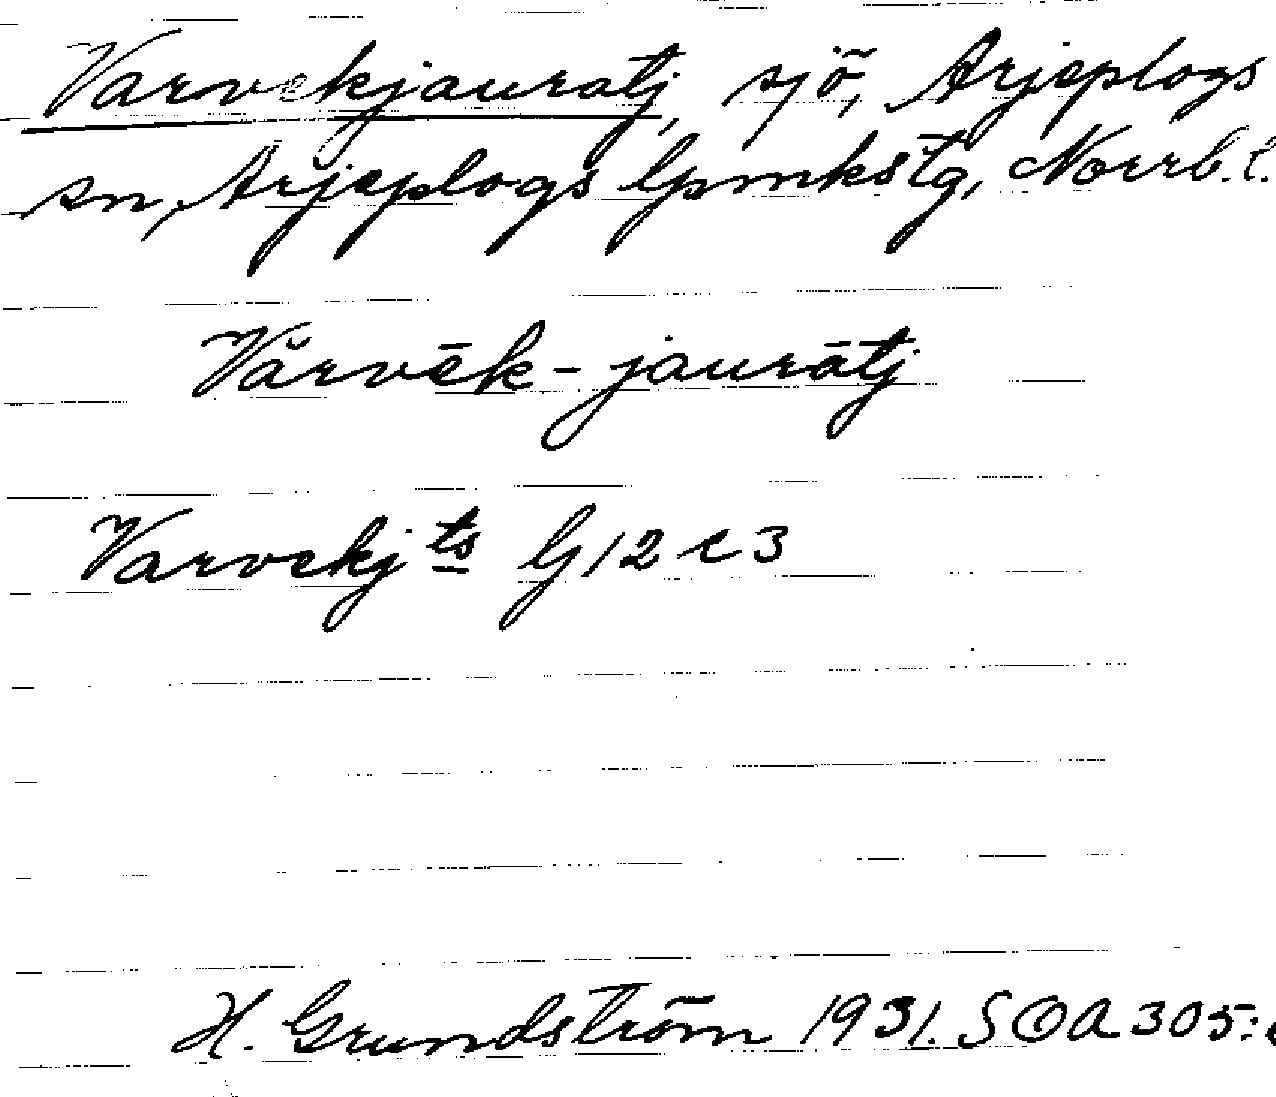 Varvekjauratj, sjö, Arjeplogs
sn, Arjeplogs lpmkstg, Norrb. l.
Vårvēk-jaurātj
Varvekj ts G 12 c 3
H. Grundström 1931. SOA 305: